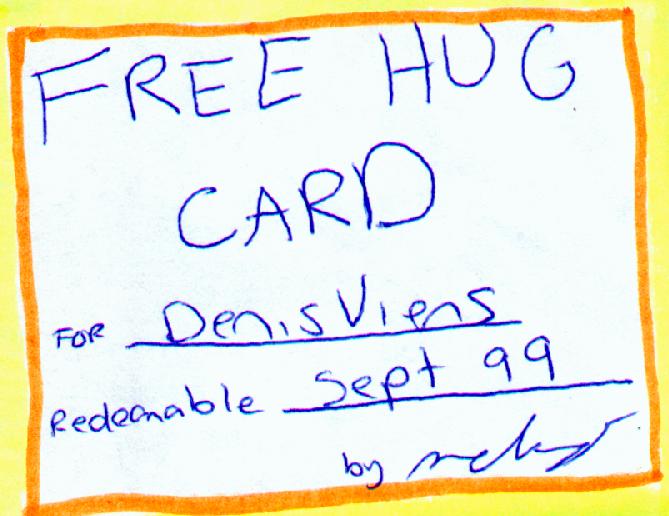 FREE HUG
CARD
FOR Denis Viens
Redeemable Sept 99
by